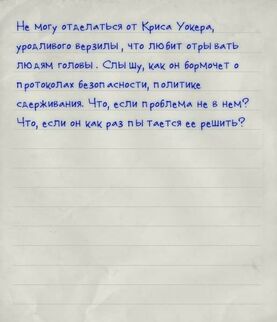 Не могу отделаться от Криса Уокера,
уродливого верзилы, что любит отрывать
людям головы. Слышу, как он бормочет о
протоколах безопасности, политике
сдерживания. Что, если проблема не в нем?
Что, если он как раз пытается ее решить?